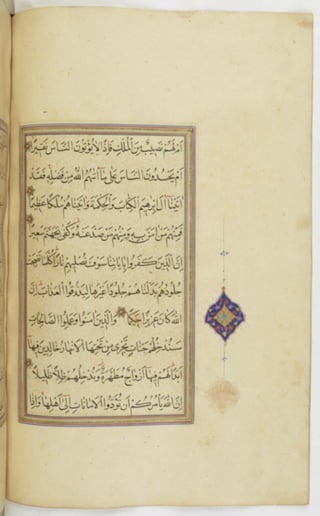 أَمْ لَهُمْ نَصِيبٌ مِنَ الْمُلْكِ فَإِذًا لَا يُؤْتُونَ النَّاسَ نَقِيرًا
أَمْ يَحْسُدُونَ النَّاسَ عَلَى مَا آتَيهُمُ اللَّهُ مِنْ فَضْلِهِ فَقَدْ
آتَيْنَا آلَ إِبْرَهِيمَ الْكِتَابَ وَالْحِكْمَةَ وَآتَيْنَاهُمْ مُلْكًا عَظِيمًا
فَمِنْهُمْ مَنْ آمَنَ بِهِ وَمِنْهُمْ مَنْ صَدَّ عَنْهُ وَكَفَى بِجَهَنَّمَ سَعِيرًا
إِنَّ الَّذِينَ كَفَرُوا بِآيَاتِنَا سَوْفَ نُصْلِيهِمْ نَارًا كُلَّمَا نَضِجَتْ
جُلُودُهُمْ بَدَّلْنَاهُمْ جُلُودًا غَيْرَهَا لِيَذُوقُوا الْعَذَابَ إِنَّ
اللَّهَ كَانَ عَزِيزًا حَكِيمًا وَالَّذِينَ آمَنُوا وَعَمِلُوا الصَّالِحَاتِ
سَنُدْخِلُهُمْ جَنَّاتٍ تَجْرِي مِنْ تَحْتِهَا الْأَنْهَارُ خَالِدِينَ فِيهَا
أَبَدًا لَهُمْ فِيهَا أَزْوَاجٌ مُطَهَّرَةٌ وَنُدْخِلُهُمْ ظِلًّا ظَلِيلًا
إِنَّ اللَّهَ يَأْمُرُكُمْ أَنْ تُؤَدُّوا الْأَمَانَاتِ إِلَى أَهْلِهَا وَإِذَا